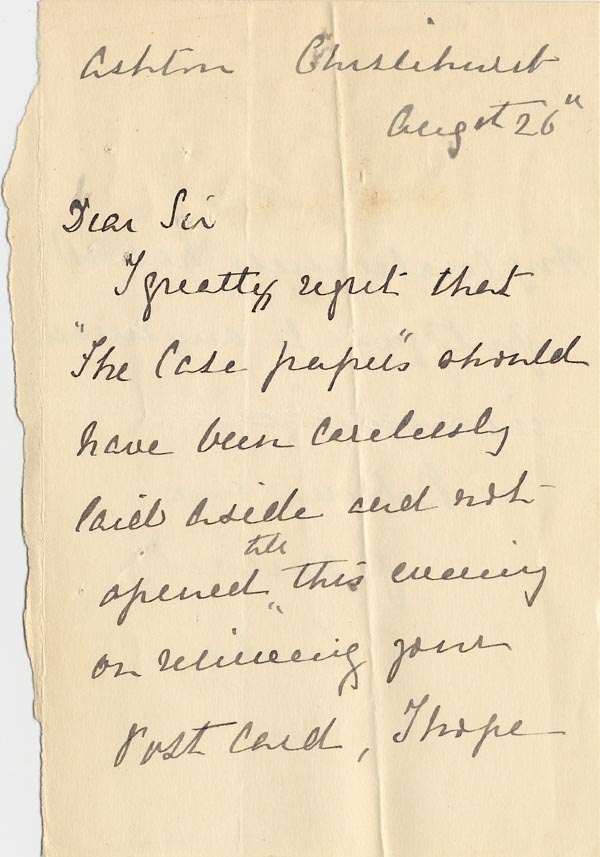 Ashton Chislehurst
Augst 26"
Dear Sir
I greatly regret that
"The Case papers" should
have been carelessly
laid aside and not
till
opened this evening
on receiving your
Post Card, I hope